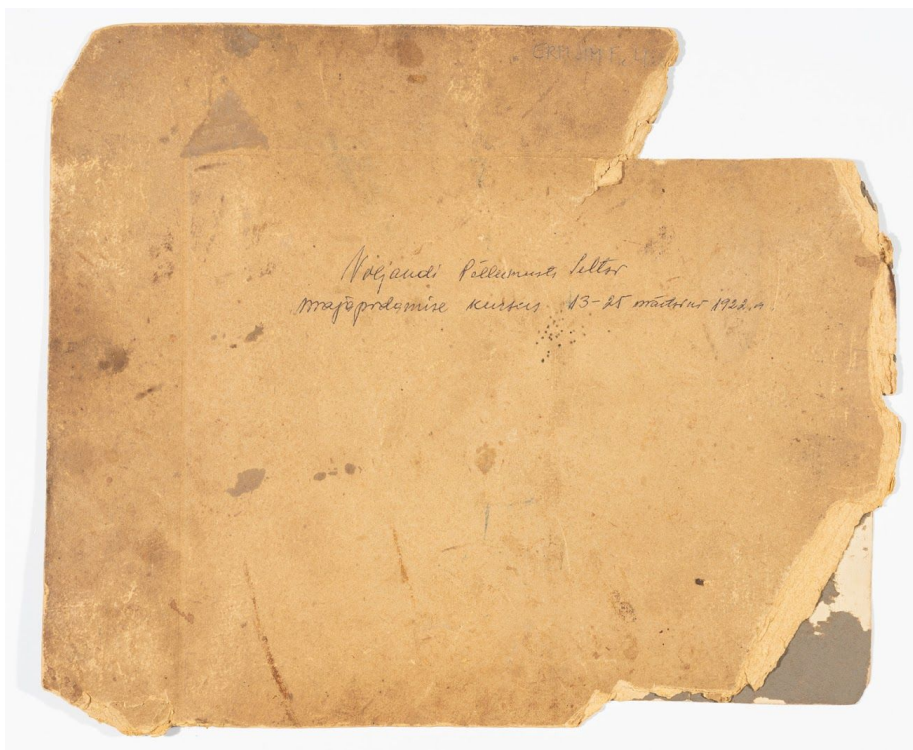 Viljandi Põllumeeste Seltsi
majapidamise kursus 13–25 märtsini 1922.a